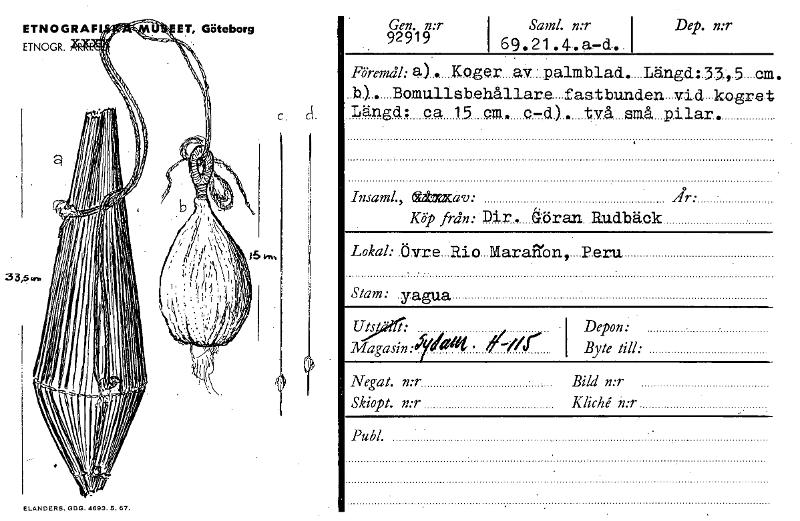 ETNOGRAFISKA MUSEET, Göteborg
ETNOGR.
a
b
c.
d.
33,5 cm
15 cm.
ELANDERS, GBG. 4693. 5. 67.
Gen. n:r
92919
Saml. n:r
69.21.4.a-d.
Dep. n:r
Föremål: a). Koger av palmblad. Längd:33,5 cm.
b). Bomullsbehållare fastbunden vid kogret
Längd: ca 15 cm. c-d). två små pilar.
Insaml., av: År:
Köp från: Dir. Göran Rudbäck
Lokal: Övre Rio Marañon, Peru
Stam: yagua
Utställt: Depon:
Magasin: Sydam. H-115 Byte till:
Negat. n:r Bild n:r
Skiopt. n:r Kliché n:r
Publ.